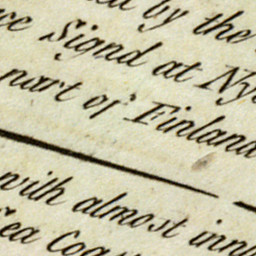 by the
Signd at
part of Finland
with almost
Sea